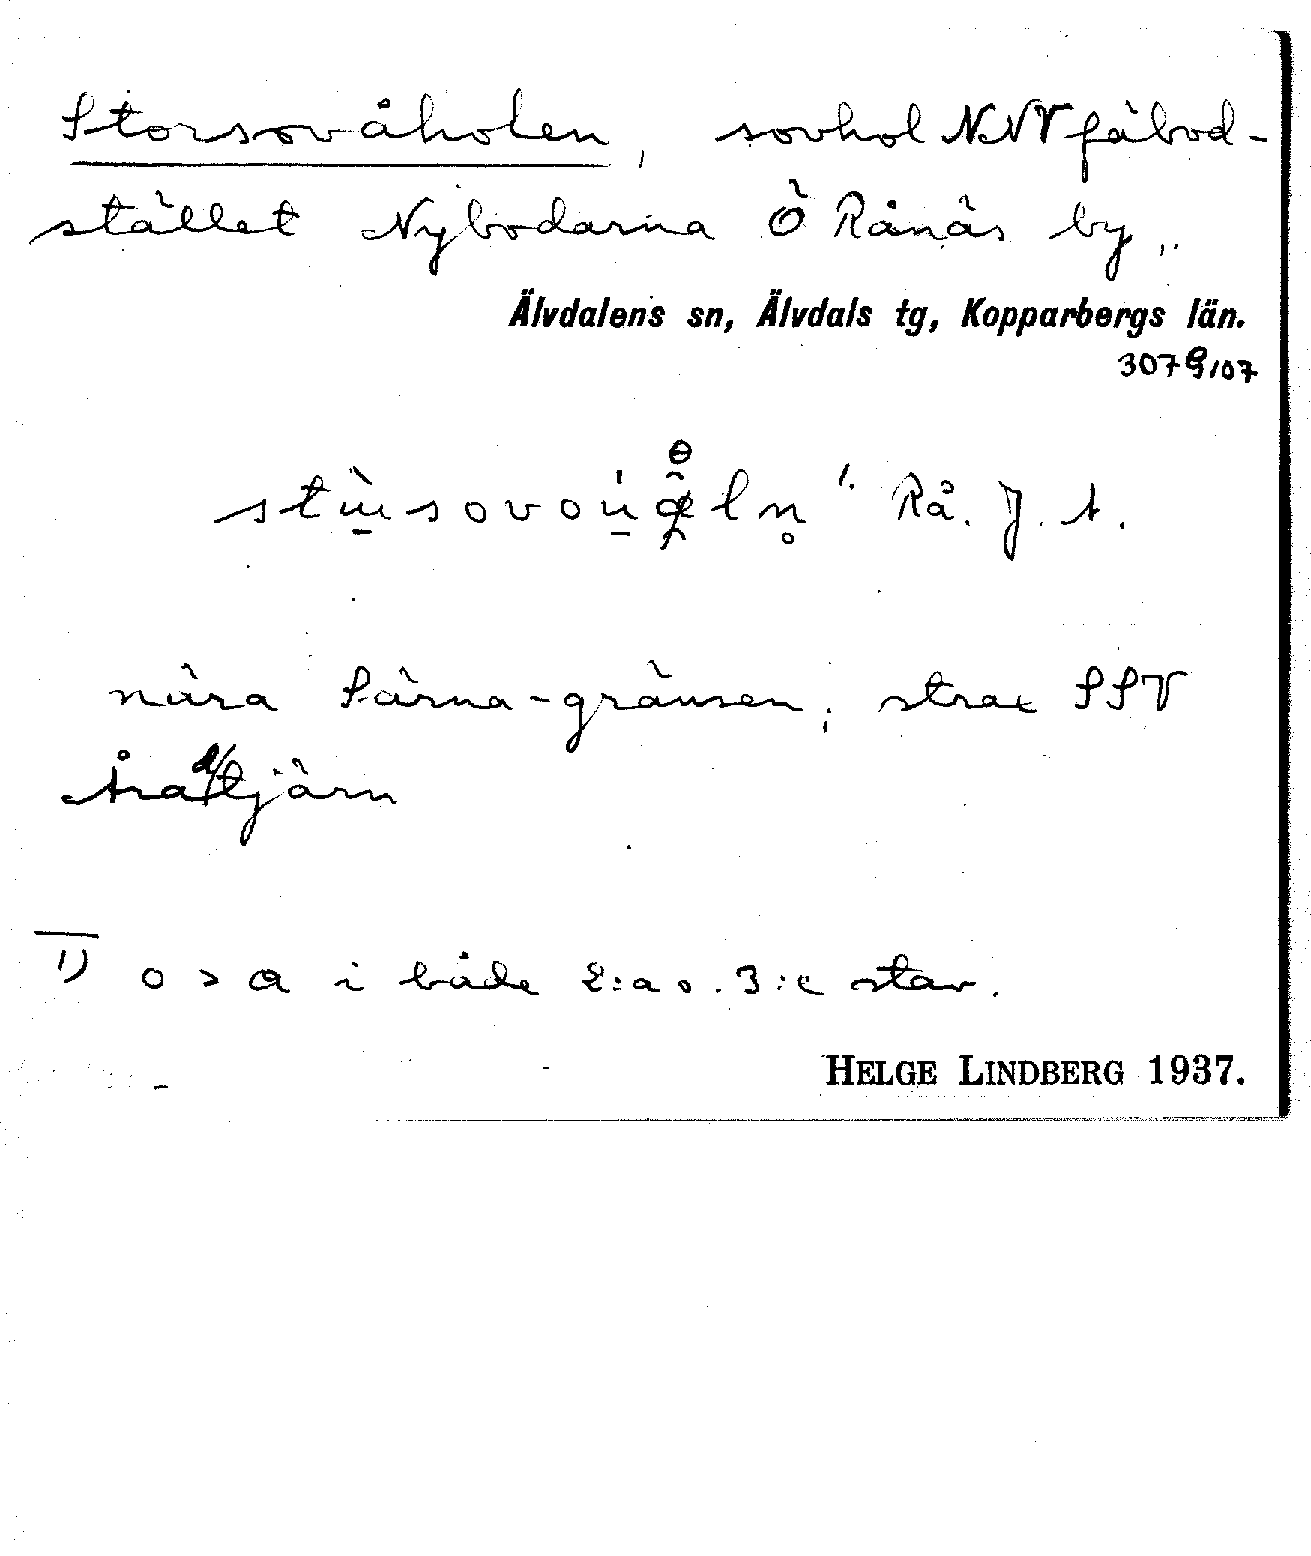 Storsovåholen, sovhol NNV fäbod-
stället Nybodarna Ö Rånäs by,.
Älvdalens sn, Älvdals tg, Kopparbergs län.
3079/07
Rå. J. s.
nära Särna-gränsen, strax SSV
Åradtjärn
1) o > a i både 2:a o. 3:e stav.
HELGE LINDBERG 1937.